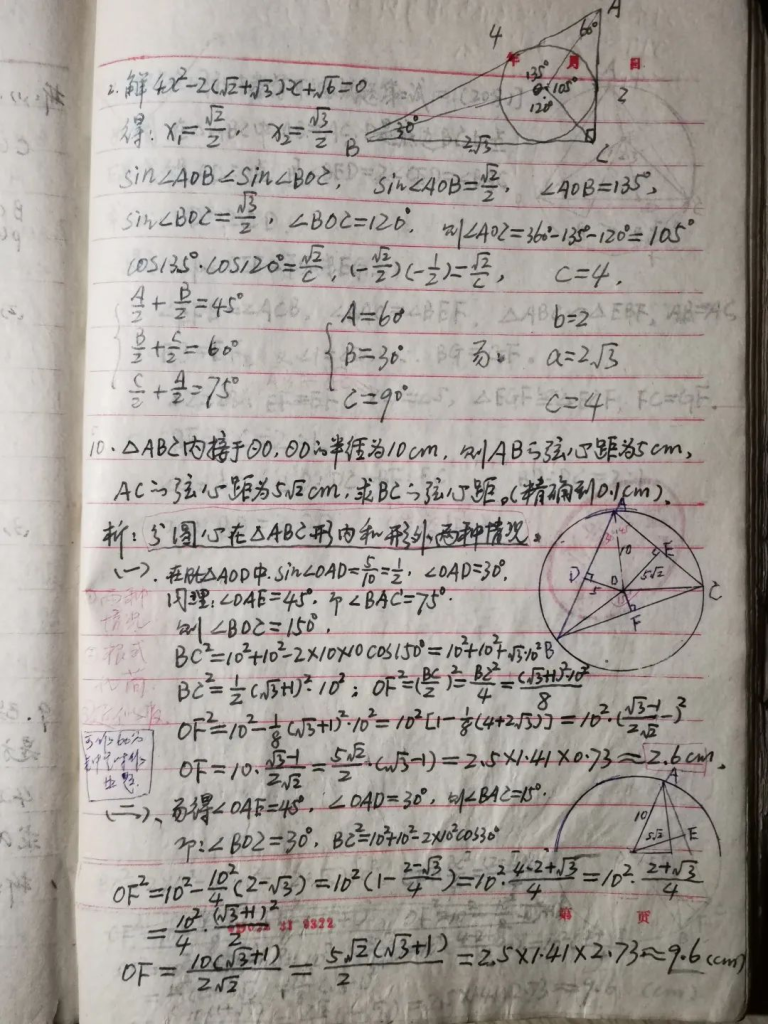 4
A
60°
年 月 日
2. 解 4x²-2(√2+√3)x+√6=0
135°
105°
120°
2
得: x₁=√2/2, x₂=√3/2
B
30°
2√3
C
sin∠AOB<sin∠BOC, sin∠AOB=√2/2, ∠AOB=135°,
sin∠BOC=√3/2, ∠BOC=120°, 则∠AOC=360°-135°-120°=105°
cos135°·cos120°=√2/C, (-√2/2)(-1/2)=√2/C, C=4.
A/2+B/2=45° A=60° b=2
B/2+C/2=60° B=30° 易: a=2√3
C/2+A/2=75° C=90° C=4
10. △ABC内接于⊙O, ⊙O的半径为10cm, 则AB的弦心距为5cm,
AC的弦心距为5√2cm, 求BC的弦心距。(精确到0.1cm).
析: 分圆心在△ABC形内和形外两种情况。
A
10
E
D
O
5
5√2
C
F
B
(一). 在Rt△AOD中. sin∠OAD=5/10=1/2, ∠OAD=30°.
同理: ∠OAE=45°. 即∠BAC=75°.
则∠BOC=150°,
BC²=10²+10²-2×10×10cos150°=10²+10²+√3·10²
BC²=1/2(√3+1)²·10²; OF²=(BC/2)²=BC²/4=(√3+1)²·10²/8
OF²=10²-1/8(√3+1)²·10²=10²[1-1/8(4+2√3)]=10²·(√3-1/2√2)²
OF=10·√3-1/2√2=5√2/2·(√3-1)=2.5×1.41×0.73≈2.6cm.
两种
情况
(二)、易得∠OAE=45°, ∠OAD=30°, 则∠BAC=15°.
即: ∠BOC=30°, BC²=10²+10²-2×10²cos30°
A
10
5√2
E
OF²=10²-10²/4(2-√3)=10²(1-2-√3/4)=10²·4-2+√3/4=10²·2+√3/4
=10²/4·(√3+1)²/2
第 页
OF=10(√3+1)/2√2=5√2(√3+1)/2=2.5×1.41×2.73≈9.6(cm)